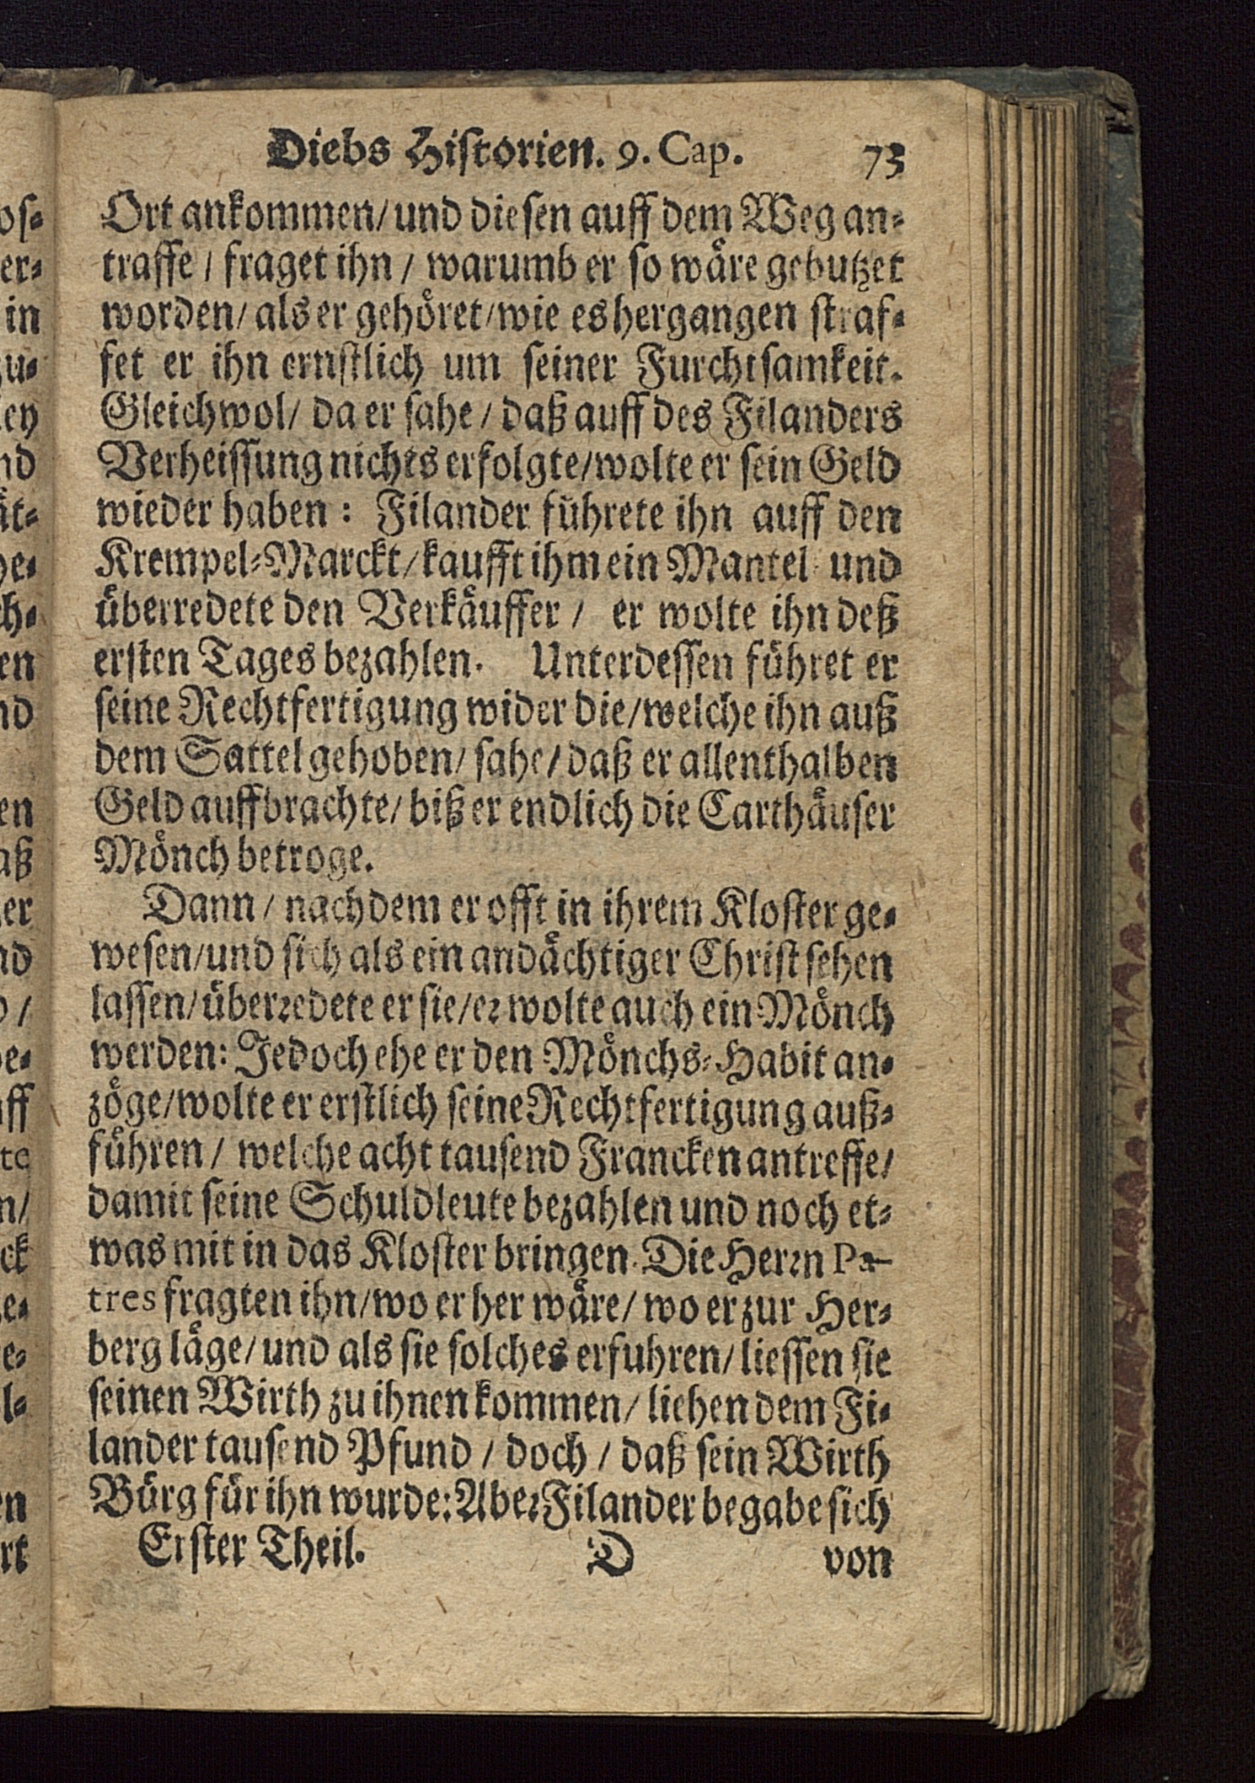 Diebs Historien. 9. Cap. 73
Ort ankommen/ und diesen auff dem Weg an-
traffe / fraget ihn / warumb er so wäre gebutzet
worden/ als er gehöret/ wie es hergangen straf-
fet er ihn ernstlich um seiner Furchtsamkeit.
Gleichwol/ da er sahe / daß auff des Filanders
Verheissung nichts erfolgte/ wolte er sein Geld
wieder haben : Filander führete ihn auff den
Krempel-Marckt/ kaufft ihm ein Mantel und
überredete den Verkäuffer / er wolte ihn deß
ersten Tages bezahlen. Unterdessen führet er
seine Rechtfertigung wider die/ welche ihn auß
dem Sattel gehoben/ sahe/ daß er allenthalben
Geld auffbrachte/ biß er endlich die Carthäuser
Mönch betroge.
Dann / nachdem er offt in ihrem Kloster ge-
wesen/ und sich als ein andächtiger Christ sehen
lassen/ überredete er sie/ er wolte auch ein Mönch
werden: Jedoch ehe er den Mönchs-Habit an-
zöge/ wolte er erstlich seine Rechtfertigung auß-
führen / welche acht tausend Francken antreffe/
damit seine Schuldleute bezahlen und noch et-
was mit in das Kloster bringen. Die Herrn Pa-
tres fragten ihn/ wo er her wäre/ wo er zur Her-
berg läge/ und als sie solches erfuhren/ liessen sie
seinen Wirth zu ihnen kommen/ liehen dem Fi-
lander tausend Pfund / doch / daß sein Wirth
Bürg für ihn wurde: Aber Filander begabe sich
Erster Theil. D von